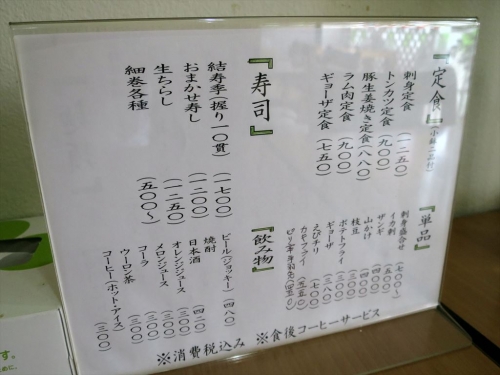 『定食』(小鉢二品付)
刺身定食 (一二五〇)
トンカツ定食 (九〇〇)
豚生姜焼き定食 (八八〇)
ラム肉定食 (九〇〇)
ギョーザ定食 (七五〇)
『寿司』
結寿季(握り一〇貫) (一七〇〇)
おまかせ寿し (一二〇〇)
生ちらし (一二五〇)
細巻各種 (五〇〇〜)
『単品』
刺身盛合せ (七〇〇〜)
イカ刺
ザンギ
山かけ
枝豆
ポテトフライ
ギョーザ (三八〇)
えびチリ (七〇〇)
カキフライ (五五〇)
『飲み物』
ビール(ジョッキー) (四八〇)
焼酎
日本酒 (四二〇)
オレンジジュース (三〇〇)
メロンジュース (三〇〇)
コーラ (三〇〇)
ウーロン茶 (三〇〇)
コーヒー(ホット・アイス) (三〇〇)
※食後コーヒーサービス
※消費税込み
す。